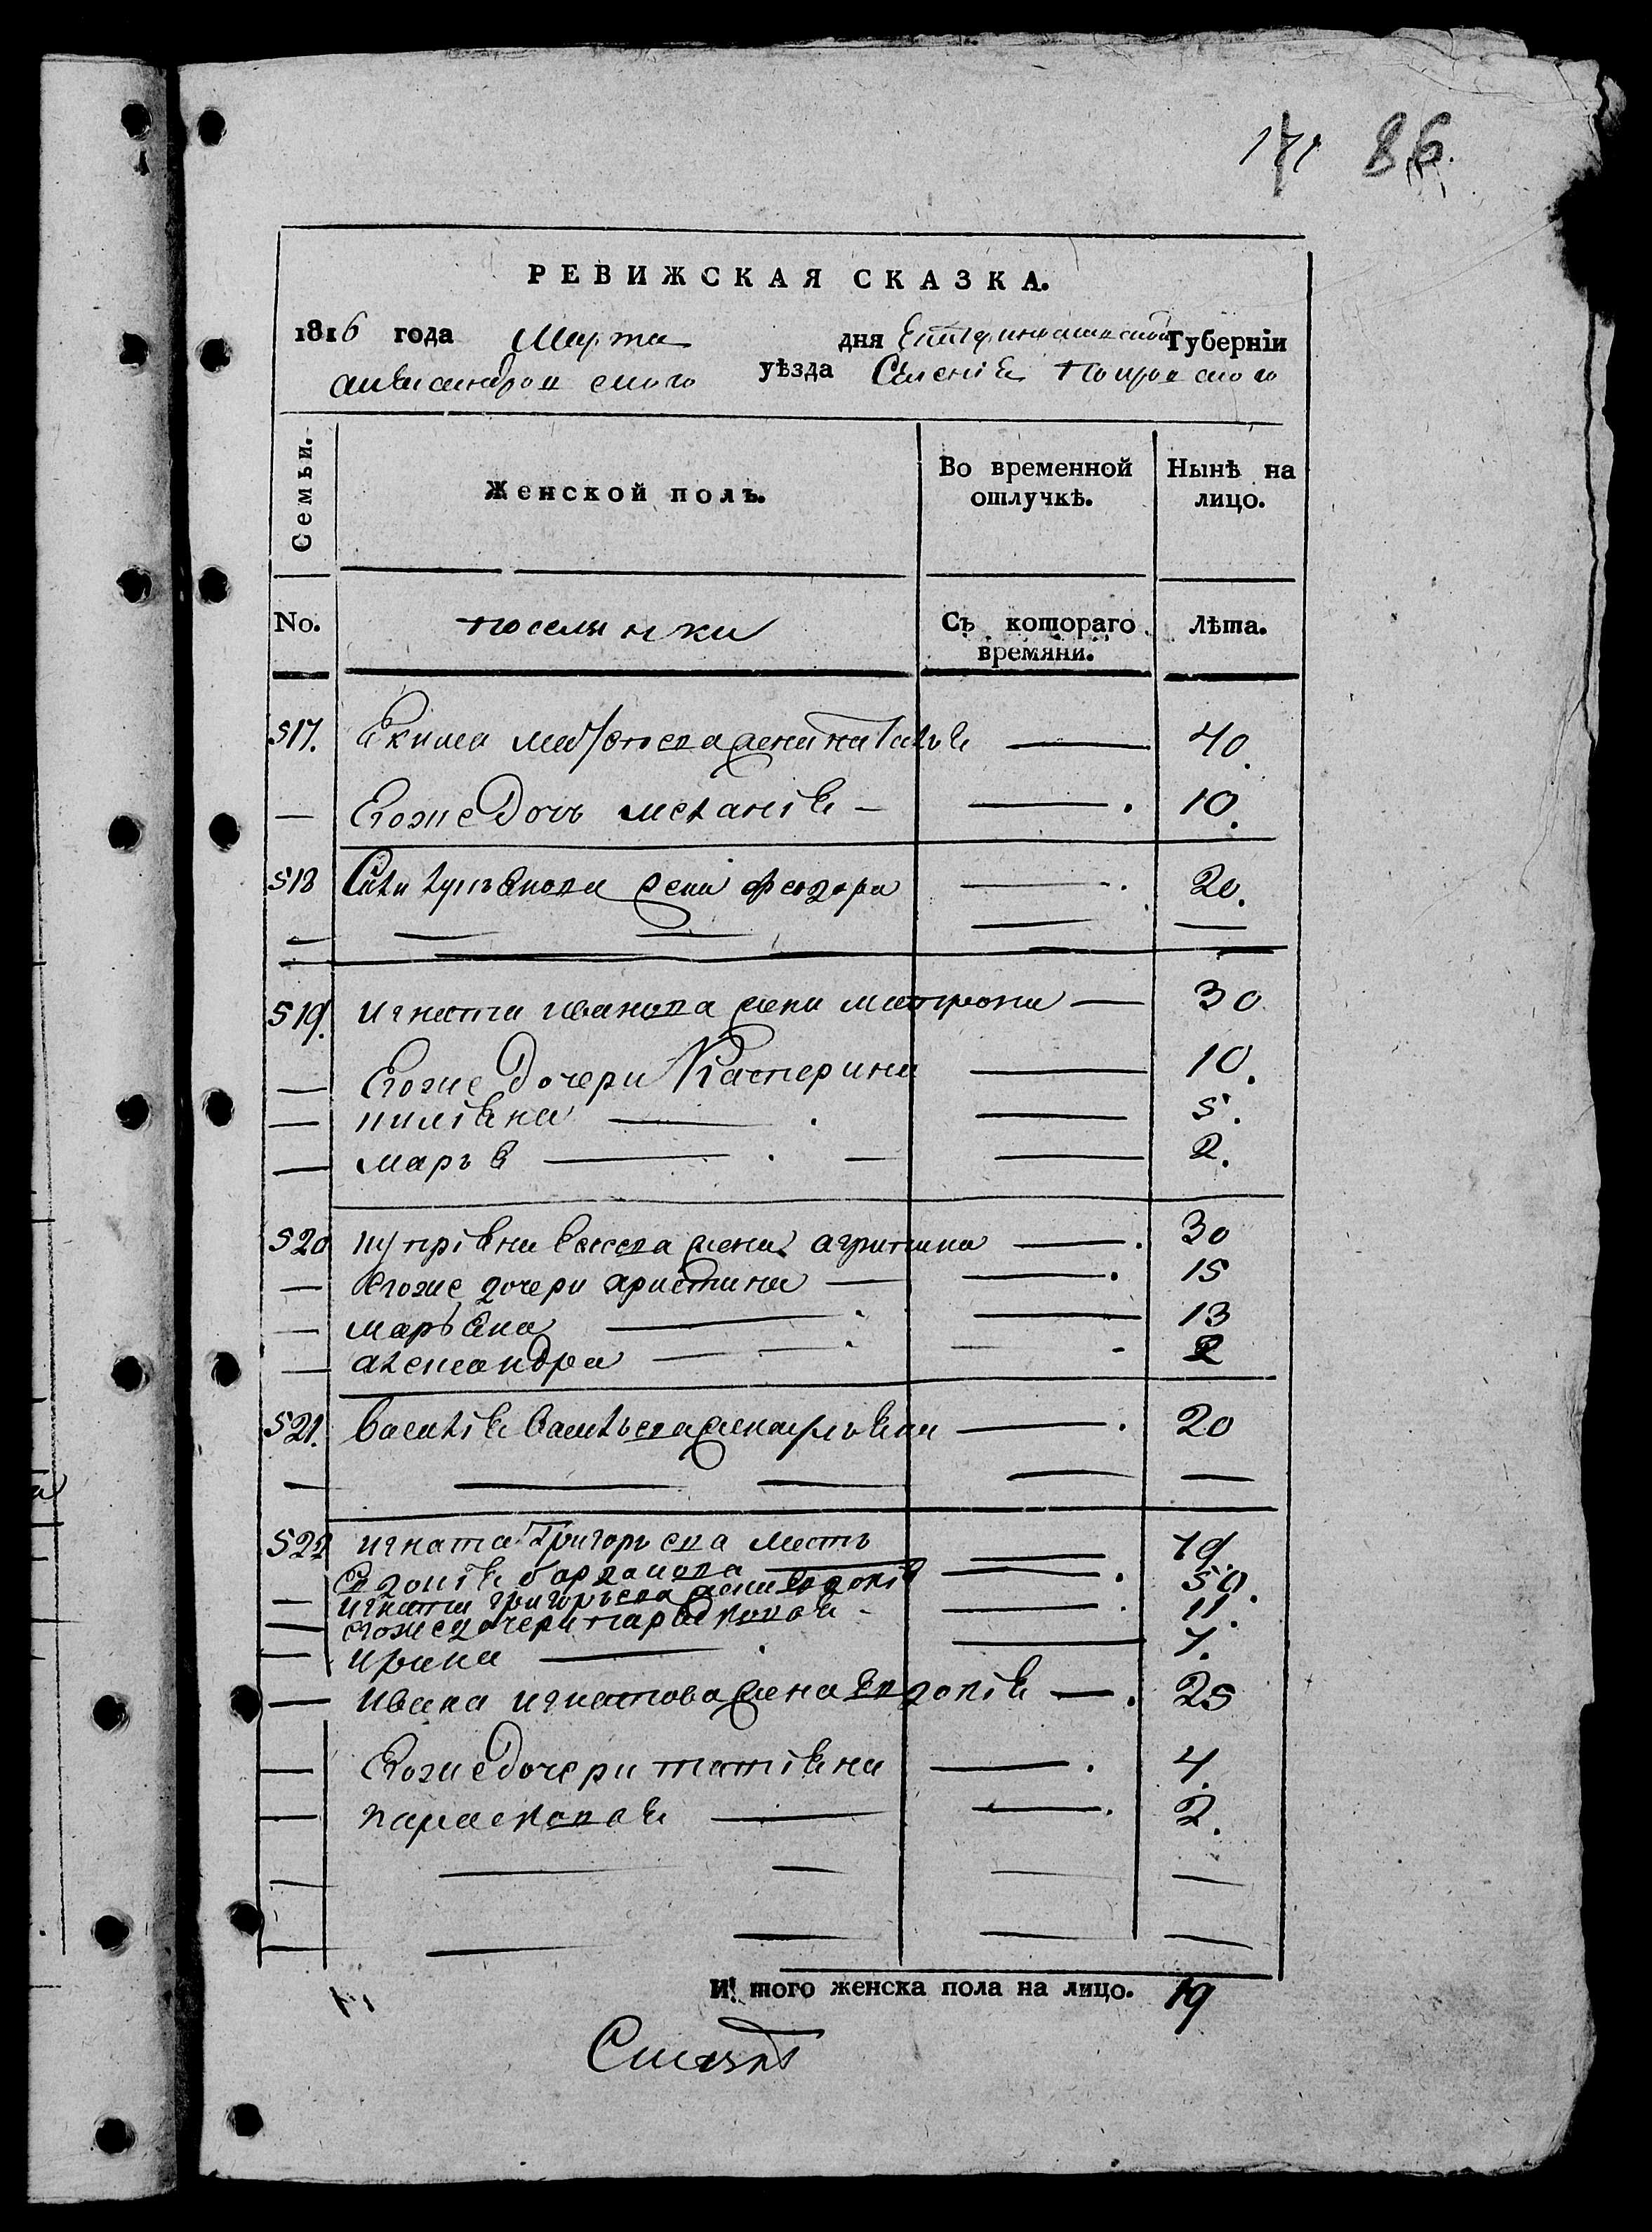 171 86.
РЕВИЖСКАЯ СКАЗКА.
1816 года Марта дня Екатеринославской Губерніи
александровскаго уѣзда Селенія Покровского
Семьи. Женской полъ. Во временной отлучкѣ. Нынѣ на лицо.
No. поселянки Съ котораго времяни. Лѣта.
517. Екима жена Наталья — 40.
— Егоже Дочь меланія — — 10.
518 жена феодора — 20.
519. игната иванова жена матрона — 30
— Егоже Дочери Катерина — 10.
— пилiяна — 5.
— марья — 2.
520 жена агрипина — 30
— Егоже дочери христина — 15
— марьяна — 13
— александра — 2
521. василія васильева жена — 20
522 игната Григорьева мать — 79.
— игната григорьева жена Евдокія — 50.
— егоже дочери парасковья — 11.
— ирина — 7.
— ивана игнатова жена Евдокія — 25
— Егоже дочери татіяна — 4.
— парасковья — 2.
И того женска пола на лицо. 19